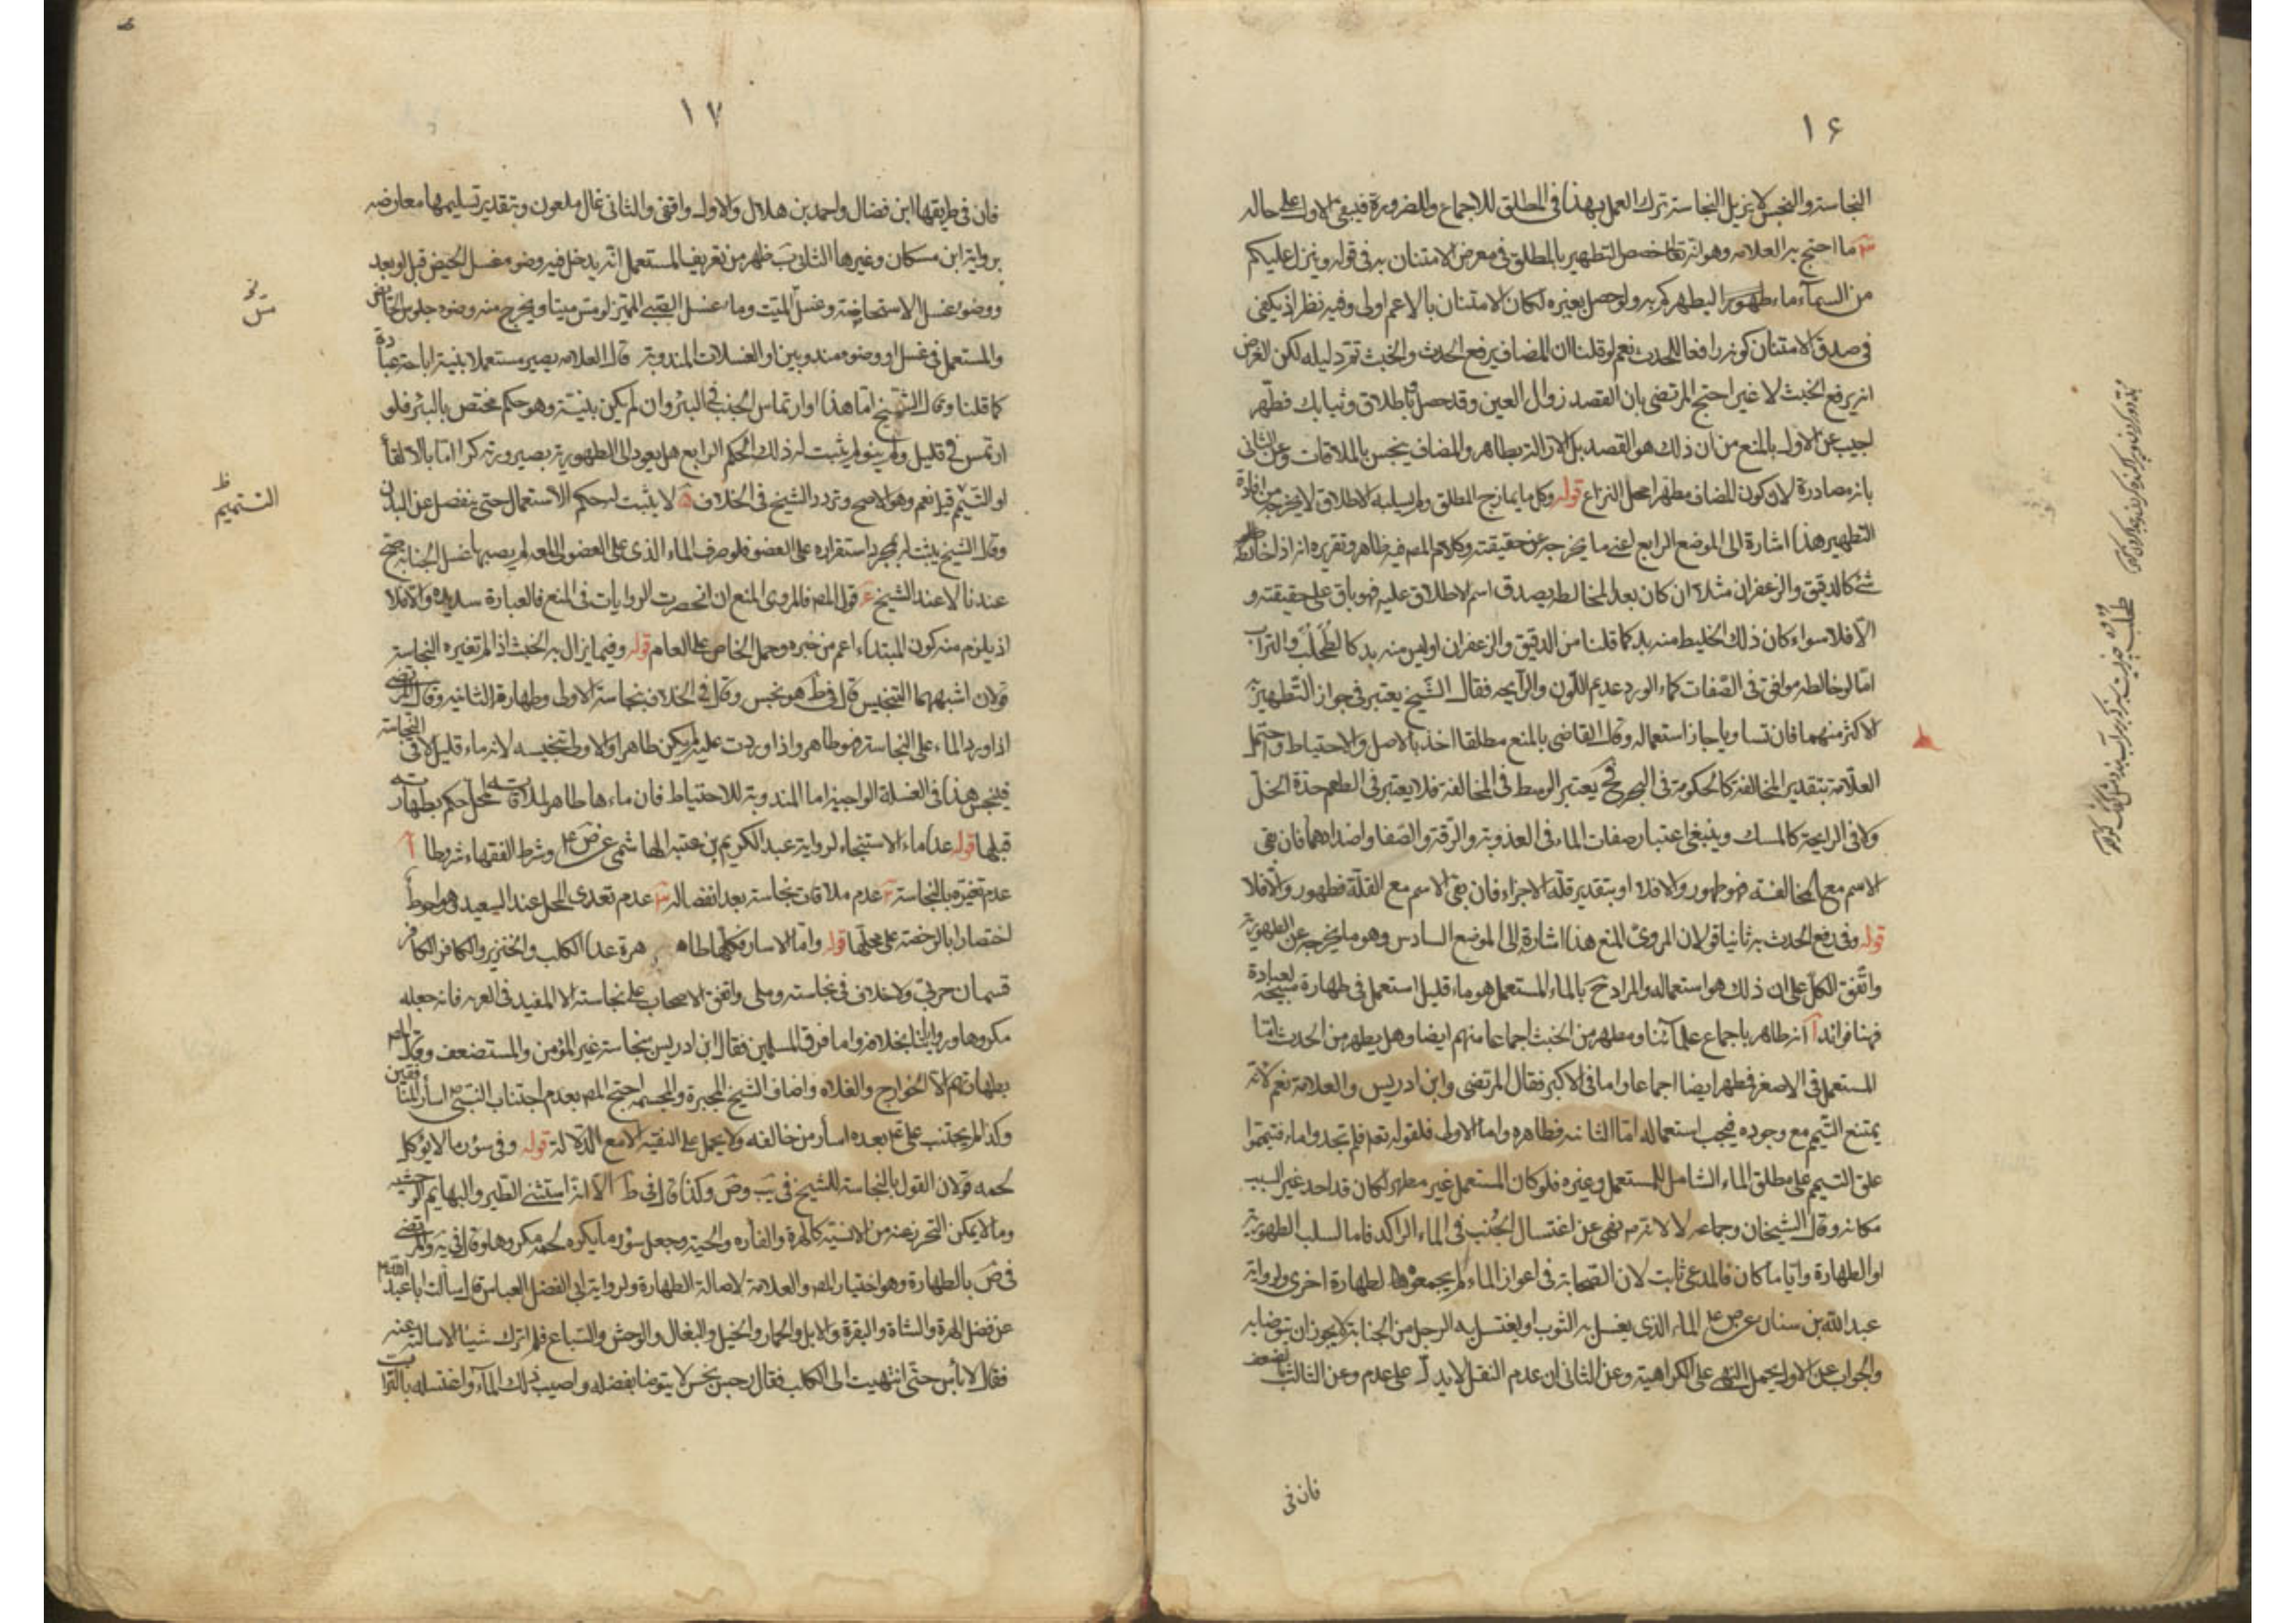 ١۶
النجاسة والنجس لا يزيل النجاسة ترك العمل بهذا فى المطلق للاجماع وللضرورة فيبقى الاول على حاله
٣ ما احتج به العلامه وهو انه تعالى خصص التطهير بالمطلق فى معرض الامتنان به فى قوله وينزل عليكم
من السمآء ماء طهورا ليطهركم به ولو حصل بغيره لكان الامتنان بالاعم اولى وفيه نظر اذ يكفى
فى صدق الامتنان كونه رافعا للحدث نعم لو قلنا ان المضاف يرفع الحدث والخبث تم دليله لكن الغرض
انه يرفع الخبث لا غير احتج المرتضى بان القصد زوال العين وقد حصل باطلاق وثيابك فطهّر
اجيب عن الاول بالمنع من ان ذلك هو القصد بل الازالة بطاهر والمضاف ينجس بالملاقات وعن الثانى
بانه مصادرة لان كون المضاف مطهرا محل النزاع قوله وكل ما يمازج المطلق ولم يسلبه الاطلاق لا يخرجه من افادة
التطهير هذا اشارة الى الموضع الرابع اعنى ما يخرجه عن حقيقته وكلام المص فيه ظاهر وتقريره انه اذا خالطه
شئ كالدقيق والزعفران مثلا ان كان بعد المخالطه يصدق اسم الاطلاق عليه فهو باق على حقيقته و
الّا فلا سواء كان ذلك الخليط منه بد كما قلنا من الدقيق والزعفران او ليس منه بد كالطُحلُب والتراب
امّا لو خالطه موافق فى الصّفات كماء الورد عديم اللّون والرآيحه فقال الشّيخ يعتبر فى جواز التّطهير به
الاكثر منهما فان تساويا جاز استعماله وقال القاضى بالمنع مطلقا اخذ بالاصل والاحتياط واحتمل
العلّامة بتقدير المخالفة كالحكومة فى الجرح فح يعتبر الوسط فى المخالفة فلا يعتبر فى الطعم حدة الخلّ
ولا فى الرايحة كالمسك وينبغى اعتبار صفات الماء فى العذوبة والرّقة والصّفا واضدادهما فان بقى
الاسم مع المخالفة فهو طهور والا فلا او بتقدير قلّة الاجزاء فان بقى الاسم مع القلّة فطهور والّا فلا
قوله وفى رفع الحدث به ثانيا قولان المروىّ المنع هذا اشارة الى الموضع السادس وهو ما يخرجه عن الطهورية
واتّفق الكلّ على ان ذلك هو استعماله والمراد ح بالماء المستعمل هو ماء قليل استعمل فى طهارة مبيحة لعبادة
فهنا فوائد آ انه طاهر باجماع علمآئنا ومطهر من الخبث اجماعا منهم ايضا وهل يطهر من الحدث امّا
المستعمل فى الاصغر فمطهر ايضا اجماعا واما فى الاكبر فقال المرتضى وابن ادريس والعلامة نعم لانه
يمتنع التّيمم مع وجوده فيجب استعماله امّا الثانيه فظاهره واما الاولى فلقوله تعم فلم تجدوا ماء فتيمّموا
علق التيمم على مطلق الماء الشامل للمستعمل وغيره فلو كان المستعمل غير مطهر لكان قد احد غير السبب
مكانه وقال الشيخان وجماعه لا لانه ص نهى عن اغتسال الجُنب فى الماء الراكد فاما لسلب الطهورية
او الطهارة وايّا ما كان فالمدعى ثابت لان الصّحابة فى اعواز الماء لم يجمعوها لطهارة اخرى ولرواية
عبد الله بن سنان عن ص ع الماء الذى يغسل به الثوب او يغتسل به الرجل من الجنابة لا يجوز ان يتوضا به
والجواب عن الاول يحمل النهى على الكراهية وعن الثانى ان عدم النقل لا يدلّ على عدم وعن الثالث بالضعف
فان فى
١٧
فان فى طريقها ابن فضال واحمد بن هلال والاول واقفى والثانى غال ملعون وبتقدير تسليمها معارضه
برواية ابن مسكان وغيرها الثانى ب ظهر من تعريف المستعمل انه يدخل فيه وضوء غسل الحيض قبل او بعد
ووضوء غسل الاستحاضة وغسل الميّت وماء غسل الصّبى المميّز لو مس ميتا ويخرج منه وضوء جلوس الحائض
والمستعمل فى غسل او وضوء مندوبين او الغسلات المندوبة قال العلامه يصير مستعملا بنية اباحة عبادة
كما قلنا وقال الشيخ امّا هذا او ارتماس الجنب فى البئر وان لم يكن بنيّة وهو حكم مختص بالبئر فلو
ارتمس فى قليل ولم ينو لم يثبت له ذلك الحكم الرابع هل يعود الى الطهورية بصيرورته كرا اما بالالقاء
او التّتميم قيل نعم وهو الاصح وتردد الشيخ فى الخلاف ۵ لا يثبت له حكم الاستعمال حتى ينفصل عن البدن
وقال الشيخ يثبت له بمجرد استقراره على العضو فلو صرف الماء الذى على العضو الى لمعة لم يصبها غسل الجنابة صح
عندنا لا عند الشيخ ۶ قول المص فالمروى المنع ان انحصرت الروايات فى المنع فالعبارة سديده والّا فلا
اذ يلزم منه كون المبتداء اعم من خبره وحمل الخاص على العام قوله وفيما يزال به الخبث اذا لم تغيره النجاسة
قولان اشبههما التنجيس قال فى ط هو نجس وقال فى الخلاف بنجاسة الاولى وطهارة الثانيه وقال المرتضى
اذا ورد الماء على النجاسة فهو طاهر واذا وردت عليه لم يكن طاهرا والاولى تنجيسه لانه ماء قليل لاقى النجاسة
فينجس هذا فى الغسلة الواجبة اما المندوبة للاحتياط فان ماءها طاهر لملاقاته محل حكم بطهارته
قبلها قوله عدا ماء الاستنجاء لرواية عبد الكريم بن عتبة الهاشمى عن ص ع وشرط الفقهاء شروطا آ
عدم تغيّره بالنجاسة ٢ عدم ملاقات نجاسة بعد انفصاله ٣ عدم تعدى المحل عند السعيد وهو احوط
اختصارا بالرخصة على محلّها قوله وامّا الاسار فكلّها طاهرة عدا الكلب والخنزير والكافر الكافر
قسمان حربىّ ولا خلاف فى نجاسته وملى واتفق الاصحاب على نجاسته الا المفيد فى العزيه فانه جعله
مكروها ورواياتنا بخلافه واما فرق المسلمين فقال ابن ادريس بنجاسة غير المؤمن والمستضعف وقال المص
بطهارتهم الّا الخوارج والغلاه واضاف الشيخ المجبرة والمجسمه احتج المص بعدم اجتناب النبىّ ص اسأر المنافقين
وكذا لم يجتنب على ع بعده اسأر من خالفه ولا يحمل على التقيه الا مع الدّلالة قوله وفى سؤر ما لا يؤكل
لحمه قولان القول بالنجاسة للشيخ فى يَب وصَ وكذا قال فى ط الّا انّه استثنى الطير والبهايم الوحشيه
وما لا يمكن التحرز عنه من الانسيّة كالهرة والفأره والحيّة وجعل سؤر ما يكره لحمه مكروها وقال فى يَه والمرتضى
فى ضَ بالطهارة وهو اختيار المص والعلامة لاصالة الطهارة ولرواية ابى الفضل العباس قال سألت ابا عبد الله ع
عن فضل الهرة والشاة والبقرة والابل والحمار والخيل والبغال والوحش والسّباع فلم اترك شيئا الا سالته عنه
فقال لا بأس حتّى انتهيت الى الكلب فقال رجس نجس لا يتوضا بفضله واصبب ذلك المآء واغسله بالتراب
التتميم ظ